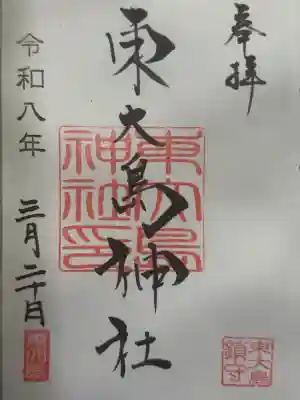 奉拝
東大島神社
東大島
神社印
令和八年
三月二十日
東大島
鎮守